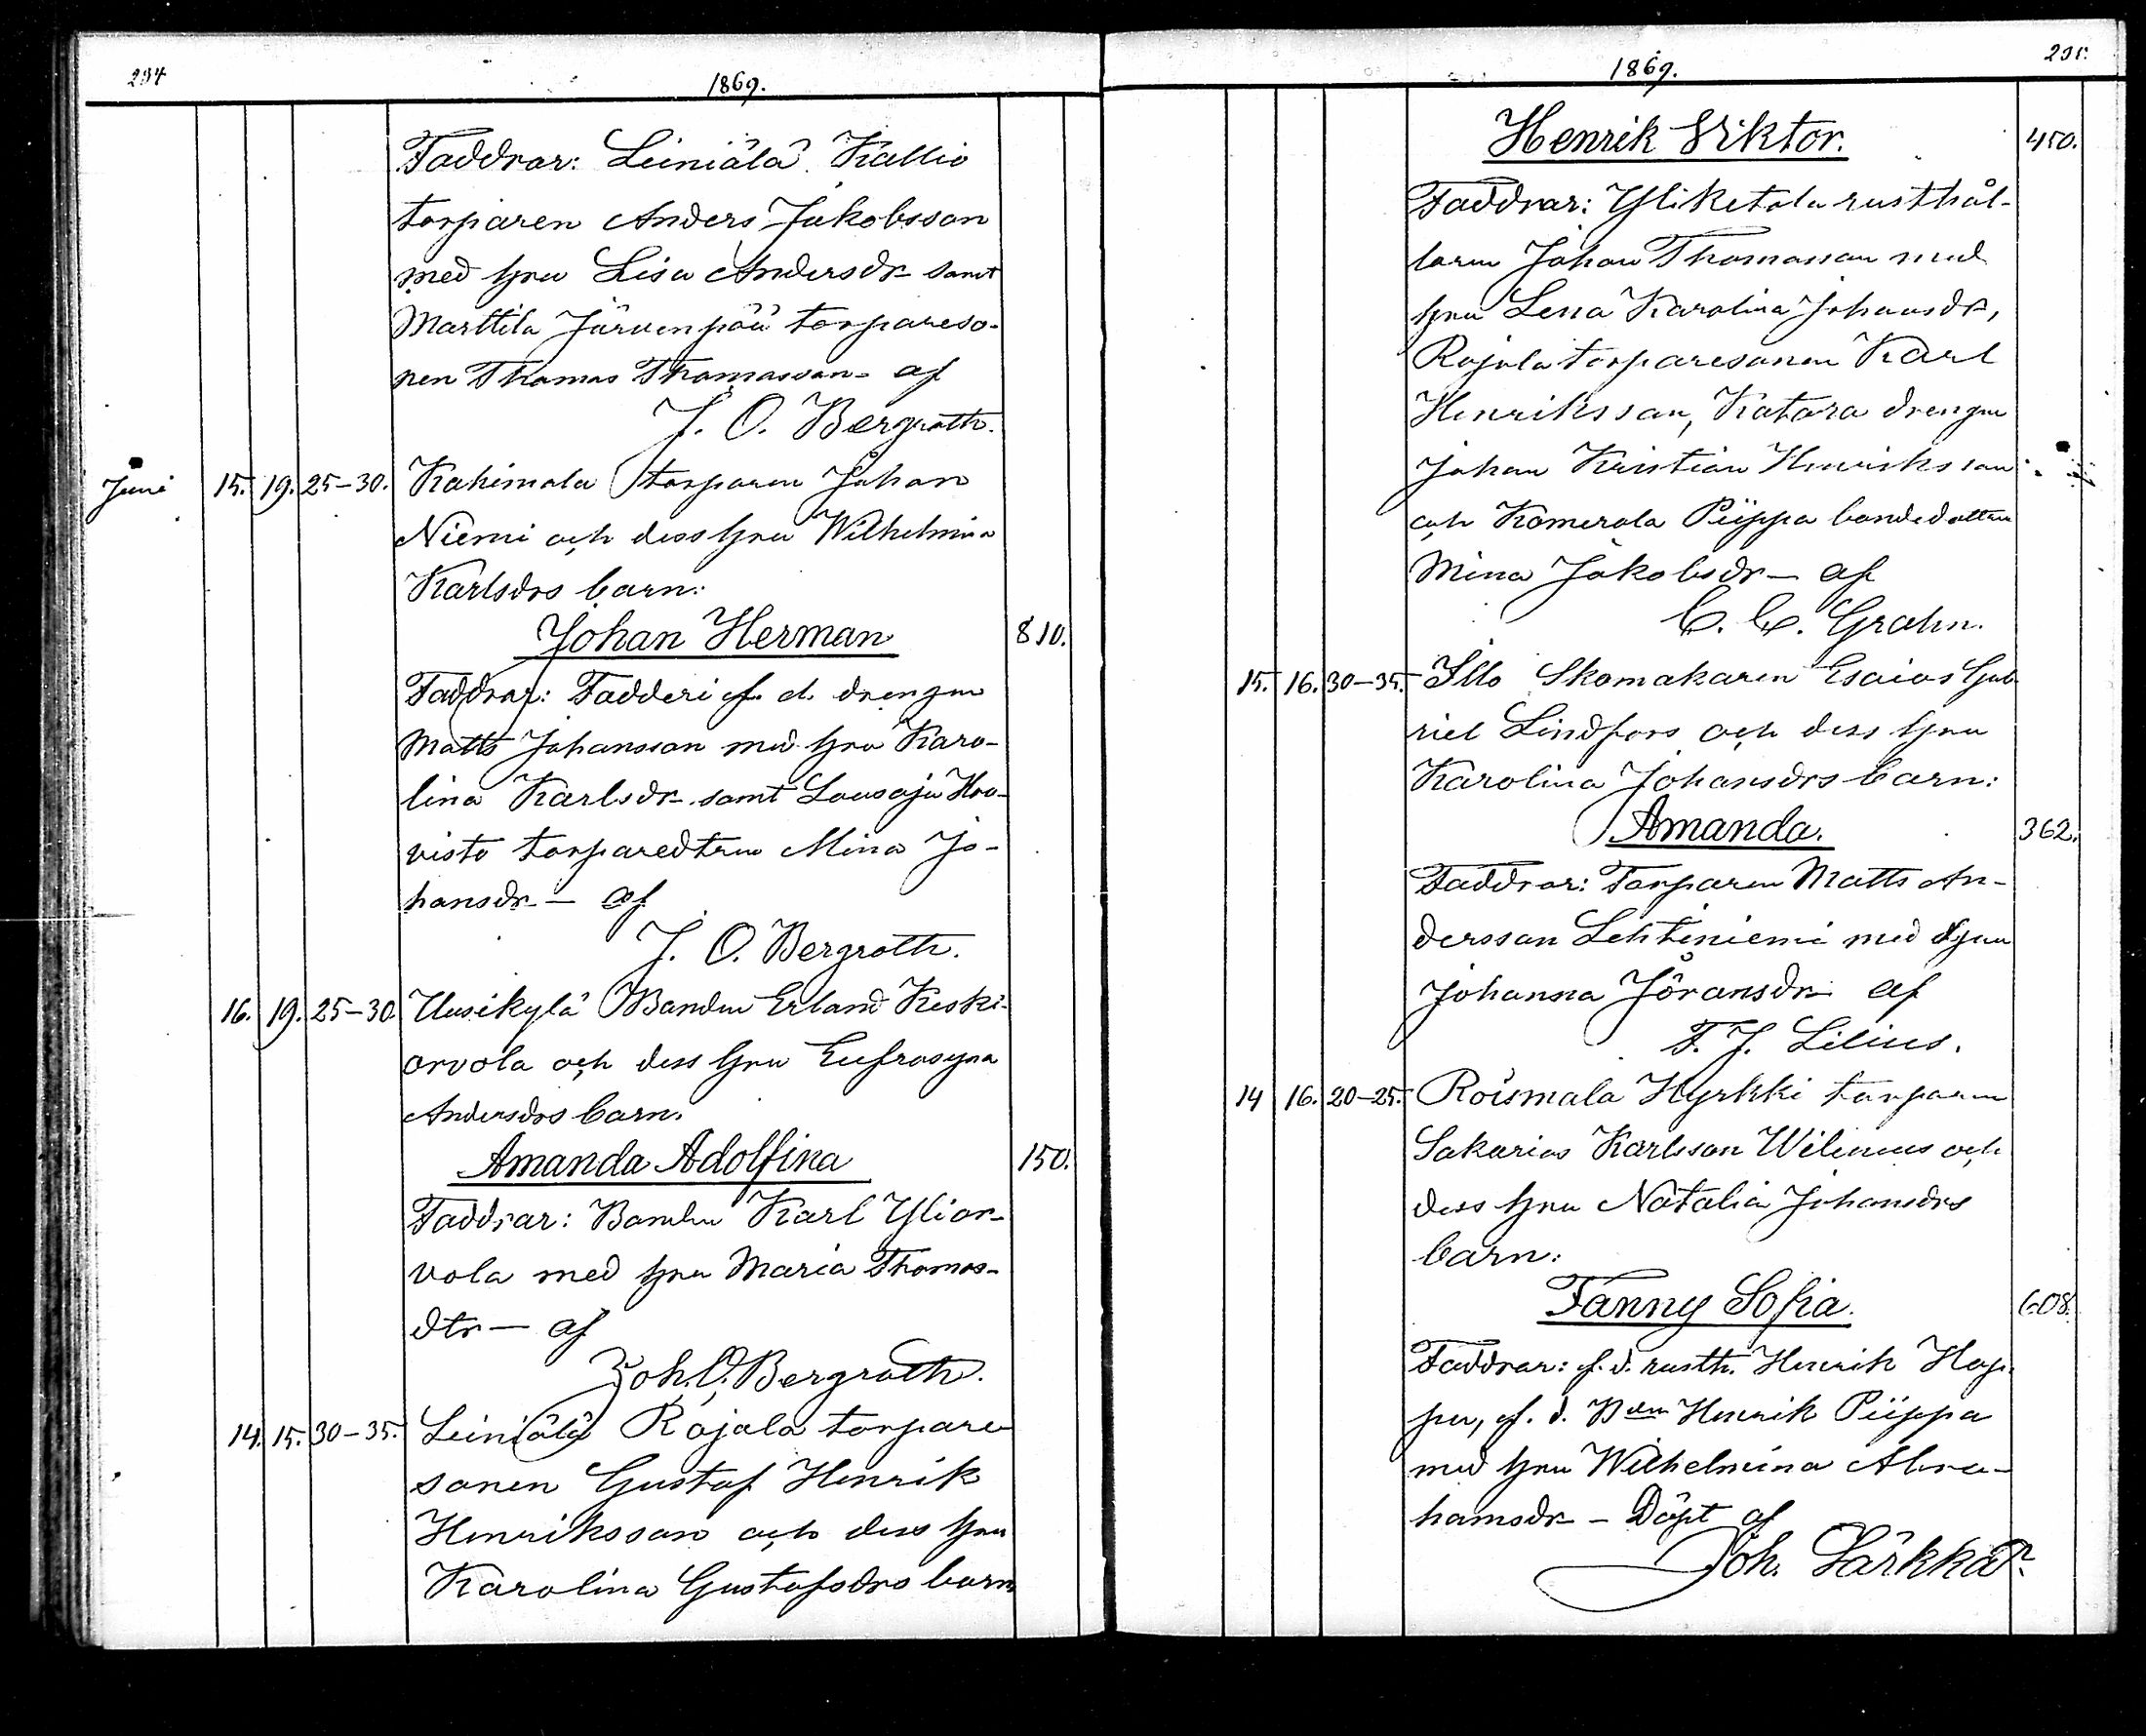 234
1869.
Faddrar: Leiniälä Kallio
torparen Anders Jakobsson
med hru Lisa Andersdr samt
Marttila Järvenpää torpareso-
nen Thomas Thomasson - af
J. O. Bergroth.
Juni 15. 19. 25-30. Kahimala torparen Johan
Niemi och dess hru Wilhelmina
Karlsdrs barn:
Johan Herman 810.
Faddrar: Fadderi f. d. drengen
Matts Johansson med hru Karo-
lina Karlsdr samt Sausaju
visto torparedtrn Mina Jo-
hansdr - af
J. O. Bergroth.
16. 19. 25-30. Uusikylä Bonden Erland Keski-
orvola och dess hru Eufrosyna
Andersdrs barn.
Amanda Adolfina 150.
Faddrar: Bonden Karl Ylior-
vola med hru Maria Thomas-
dtr - af
Joh. O. Bergroth.
14. 15. 30-35. Leiniälä Rajala torpare
sonen Gustaf Henrik
Henriksson och dess hru
Karolina Gustafsdrs barn
235.
1869.
Henrik Viktor. 450.
Faddrar: Yliketola rusthål-
laren Johan Thomasson med
hru Lena Karolina Johansdr,
Rajala torparesonen Karl
Henriksson, Katara drengen
Johan Kristian Henriksson
och Kömerola Piippa bondedottren
Mina Jakobsdr - af
C. C. Grahn.
15. 16. 30-35. Illo Skomakaren Esaias Gab
riel Lindfors och dess hru
Karolina Johansdrs barn:
Amanda. 362.
Faddrar: Torparen Matts An-
dersson Lehtiniemi med hru
Johanna Jöransdr af
F. J. Lilius.
14 16. 20-25. Roismala Kyrkki torparen
Sakarias Karlsson Wilenius och
dess hru Natalia Johansdrs
barn:
Fanny Sofia. 608.
Faddrar: f. d. rusth. Henrik Hop-
pu, f. d. Bden Henrik Piippa
med hru Wilhelmina Abra-
hamsdr - Döpt af
Joh. Särkkä